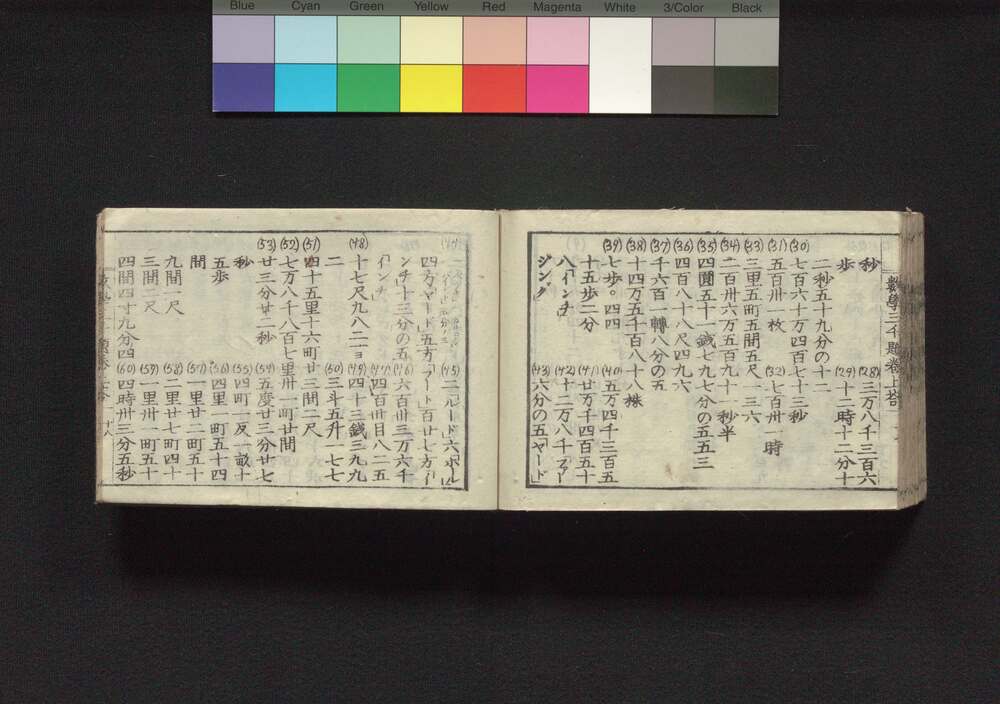 Blue Cyan Green Yellow Red Magenta White 3/Color Black
數學三千題卷上答
(28)三万八千三百六
秒
(29)十二時十二分十
歩
二秒五十九分の十二
(30)七百六十万四百七十三秒
(31)五百卅一枚
(32)七百卅一時
(33)三里五町五間五尺一三六
(34)二百卅六万五百九十一秒半
(35)四圓五十一錢七九七分の五五三
(36)四百八十八尺四九六
(37)千六百一轉八分の五
(38)十四万五千百八十八株
(39)七歩。四四
(40)五万四千三百五
十五歩二分
(41)廿万千四百五十
八「インチ」
(42)十二万八千
(43)六分の五「ヤード」
(45)二「ルード」六「ポール」
四方「ヤード」五方「フート」百廿七方「イ
ンチ」十三分の五
(46)六百卅三万六千
「インチ」
(47)四百卅日八二五
(48)十七尺九八二一ヨ
(49)四十三錢三九九
二
(50)三斗五升一七七
(51)四十五里十六町廿三間二尺
(52)七万八千八百七里卅一町廿間
(53)廿三分廿二秒
(54)五度廿三分廿七
秒
(55)四町一反一畝十
五歩
(56)四里一町五十四
間
(57)一里廿二町五十
九間一尺
(58)二里廿七町四十
三間二尺
(59)一里卅一町五十
四間四寸九分四
(60)四時卅三分五秒